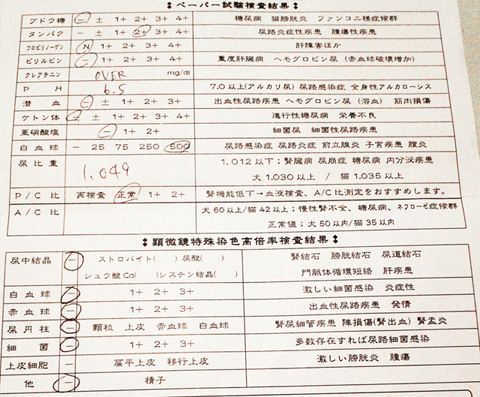 ペーパー試験検査結果
ブドウ糖 － ± 1+ 2+ 3+ 4+ 糖尿病 猫膀胱炎 ファンコニ様症候群
タンパク － ± 1+ 2+ 3+ 4+ 尿路炎症性疾患 腫瘍性疾患
ウロビリノーゲン N 1+ 2+ 3+ 4+ 肝障害ほか
ビリルビン － 1+ 2+ 3+ 4+ 重度肝臓病 ヘモグロビン尿(赤血球破壊増加)
クレアチニン OVER mg/dl
PH 6.5 7.0以上(アルカリ尿) 尿路感染症 全身性アルカローシス
潜血 － ± 1+ 2+ 3+ 出血性尿路疾患 ヘモグロビン尿(溶血) 筋肉損傷
ケトン体 － ± 1+ 2+ 3+ 4+ 進行性糖尿病 栄養不良
亜硝酸塩 － 1+ 2+ 細菌尿 細菌性尿路疾患
白血球 － 25 75 250 500 尿路感染症 尿路炎症 前立腺炎 子宮疾患 膣炎
尿比重 1.049 1.012以下;腎臓病 尿崩症 糖尿病 内分泌疾患
犬1.030以上 / 猫1.035以上
P/C比 再検査 正常 1+ 2+ 腎機能低下→血液検査、A/C比測定をおすすめします。
A/C比 犬60以上/猫42以上;慢性腎不全、糖尿病、ネフローゼ症候群
正常値;犬50以内/猫35以内
顕微鏡特殊染色高倍率検査結果
尿中結晶 － ストロバイト( ) 尿酸( ) 腎結石 膀胱結石 尿道結石
シュウ酸Ca( ) シスチン結晶( ) 門脈体循環短絡 肝疾患
白血球 － 1+ 2+ 3+ 激しい細菌感染 炎症性
赤血球 － 1+ 2+ 3+ 出血性尿路疾患 発情
尿円柱 － 顆粒 上皮 赤血球 白血球 腎尿細管疾患 障損傷(腎出血) 腎盂炎
細菌 － 1+ 2+ 3+ 多数存在すれば尿路細菌感染
上皮細胞 － 扁平上皮 移行上皮 激しい膀胱炎 腫瘍
他 － 精子